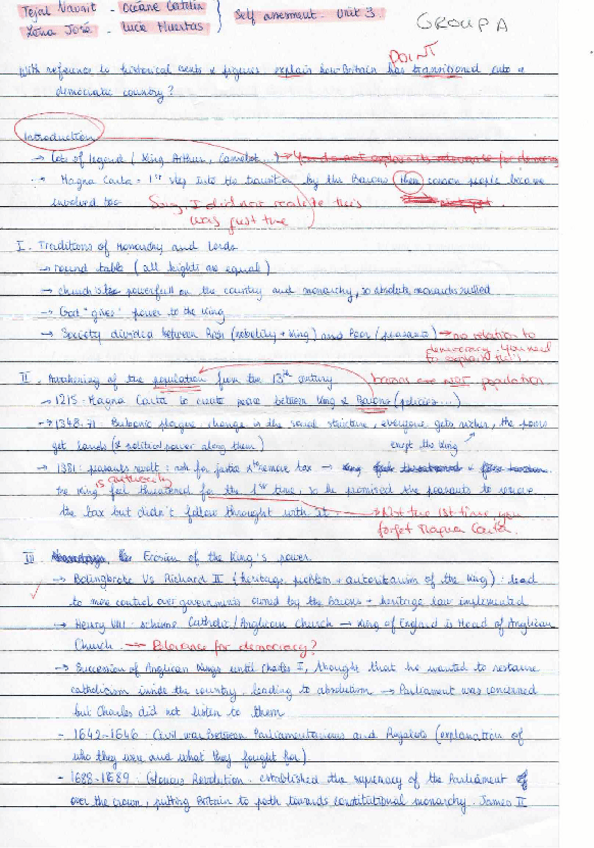 Tejal Navnit - Océane Catelin
Léna José - Lucie Huertas
Self assessment - Unit 3
GROUP A
POINT
With reference to historical events & figures explain how Britain has transitioned into a
democratic country?
Introduction
→ Lots of legend (King Arthur, Camelot...) → You do not explain its relevance for democracy
→ Magna Carta = 1st step into the transition by the Barons then common people became
involved too
Sorry, I did not realize this
was just the
I. Traditions of Monarchy and lords
→ round table (all knights are equal)
→ church is powerfull on the country and monarchy, so absolute monarchs ruled
→ God "gives" power to the King
→ Society divided between Rich (nobility + King) and Poor (peasants) → no relation to
democracy. You need
to explain this
II. Awakening of the population from the 13th century
barons are NOT population
→ 1215: Magna Carta to create peace between King & Barons (policies...)
→ 1348-71: Bubonic plague, change in the social structure, everyone gets richer, the poors
get lands (& political power along them)
except the King
→ 1381: peasants revolt: ask for justice & to remove tax →
is partnersing
the king feel threatened for the 1st time, so he promised the peasants to remove
the tax but didn't follow throught with it. → Not the 1st time, you
forget Magna Carta.
III Erosion of the King's power
→ Bolingbroke Vs Richard II (heritage problem + autoritarism of the king): lead
to more control over governments owned by the Barons + heritage law implemented
→ Henry VIII: schisme Catholic/Anglican Church → King of England is Head of Anglican
Church. → Relevance for democracy?
→ Succession of Anglican Kings until Charles I, thought that he wanted to restore
catholicism inside the country, leading to absolutism → Parliament was concerned
but Charles did not listen to them
- 1642-1646: Civil war Between Parliamentarians and Royalists (explanation of
who they were and what they fought for)
- 1688-1689: Glorious Revolution: established the supremacy of the Parliament
over the crown, putting Britain to path towards constitutional monarchy. James II